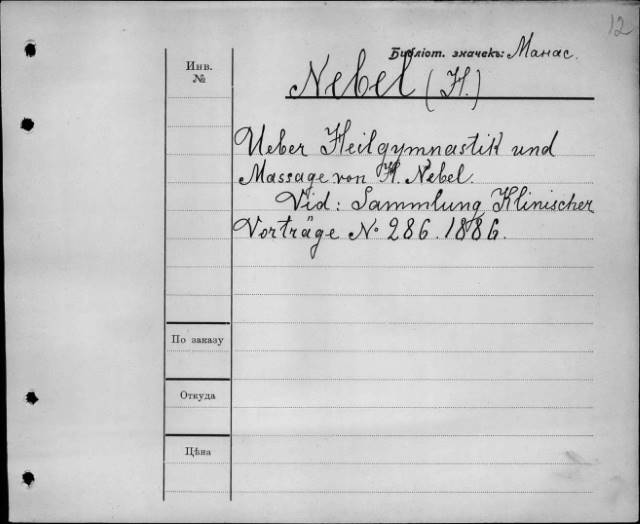 12
Библіот. значекъ: Манас.
Инв.
№
Nebel (H.)
Ueber Heilgymnastik und
Massage von H. Nebel.
Vid: Sammlung Klinischer
Vorträge No 286. 1886.
По заказу
Откуда
Цѣна